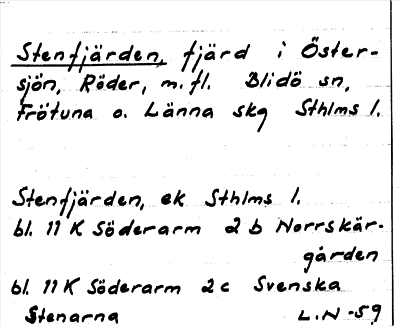 Stenfjärden, fjärd i Öster-
sjön, Röder, m.fl. Blidö sn,
Frötuna o. Länna skg Sthlms l.
Stenfjärden, ek Sthlms l.
bl. 11 K Söderarm 2 b Norrskär-
gården
bl. 11 K Söderarm 2 c Svenska
Stenarna L.N -59